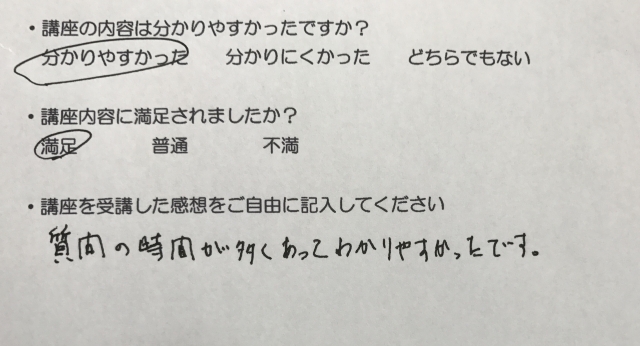 ・講座の内容は分かりやすかったですか？
分かりやすかった　分かりにくかった　どちらでもない
・講座内容に満足されましたか？
満足　普通　不満
・講座を受講した感想をご自由に記入してください
質問の時間が多くあってわかりやすかったです。